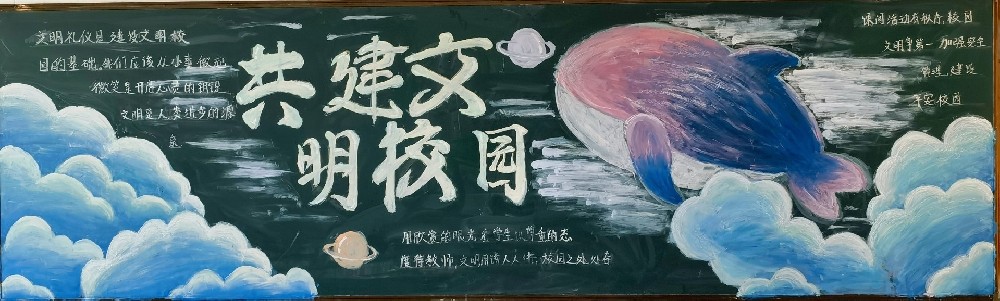 文明礼仪是建设文明校
园的基础,我们应该从小事做起
微笑是开启心灵的钥匙
文明是人类进步的源
泉
共建文
明校园
用欣赏的眼光看学生,以尊重的态
度待教师,文明用语人人讲,校园之处处存
课间活动有秩序,校园
文明争第一 加强安全
管理,建设
平安校园